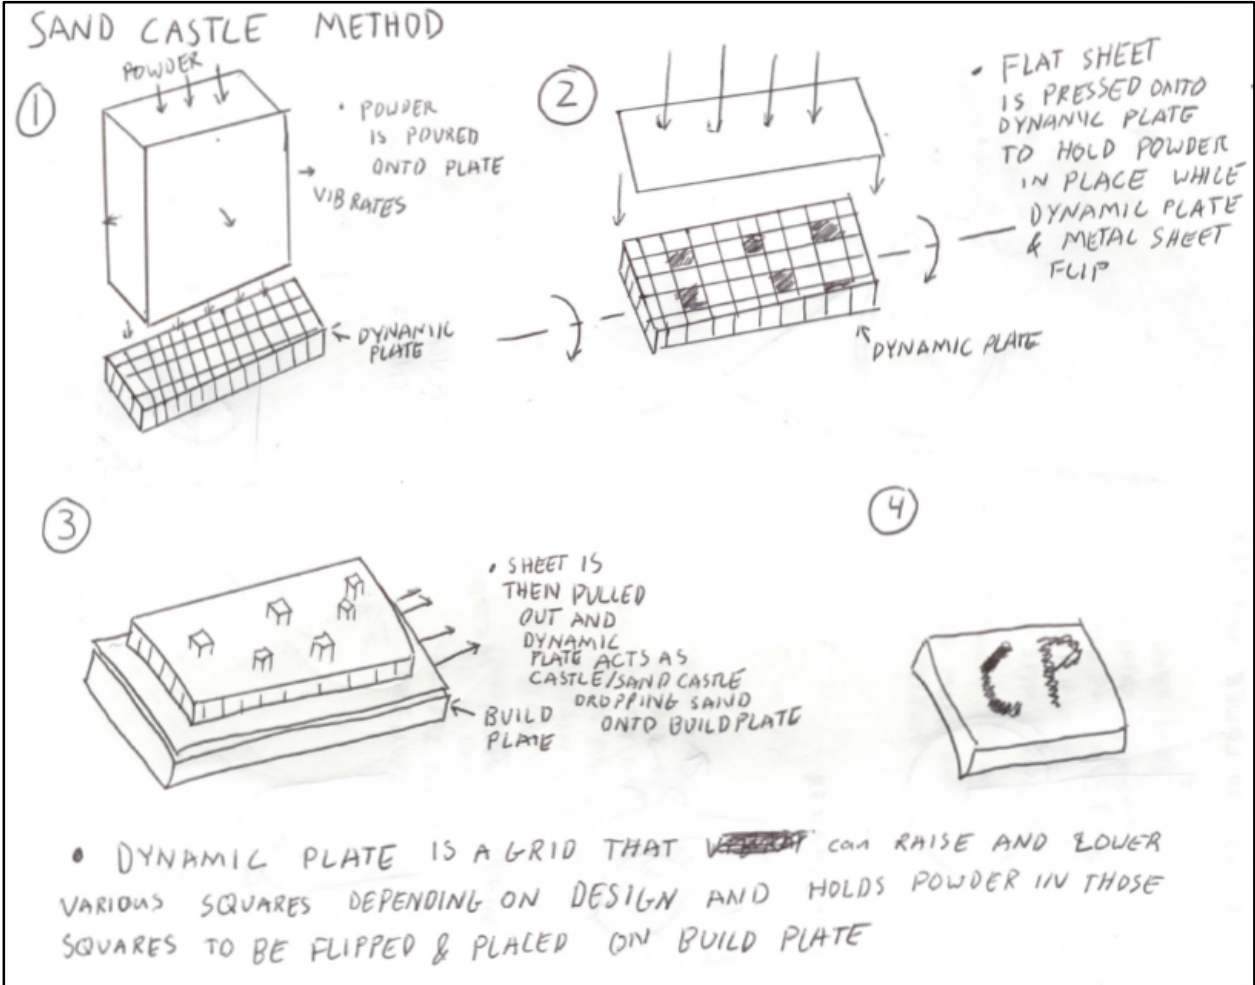 SAND CASTLE METHOD
①
POWDER
• POWDER
IS POURED
ONTO PLATE
→ VIBRATES
← DYNAMIC
PLATE
②
• FLAT SHEET
IS PRESSED ONTO
DYNAMIC PLATE
TO HOLD POWDER
IN PLACE WHILE
DYNAMIC PLATE
& METAL SHEET
FLIP
DYNAMIC PLATE
③
• SHEET IS
THEN PULLED
OUT AND
DYNAMIC
PLATE ACTS AS
CASTLE/SAND CASTLE
DROPPING SAND
ONTO BUILD PLATE
← BUILD
PLATE
④
• DYNAMIC PLATE IS A GRID THAT can RAISE AND LOWER
VARIOUS SQUARES DEPENDING ON DESIGN AND HOLDS POWDER IN THOSE
SQUARES TO BE FLIPPED & PLACED ON BUILD PLATE